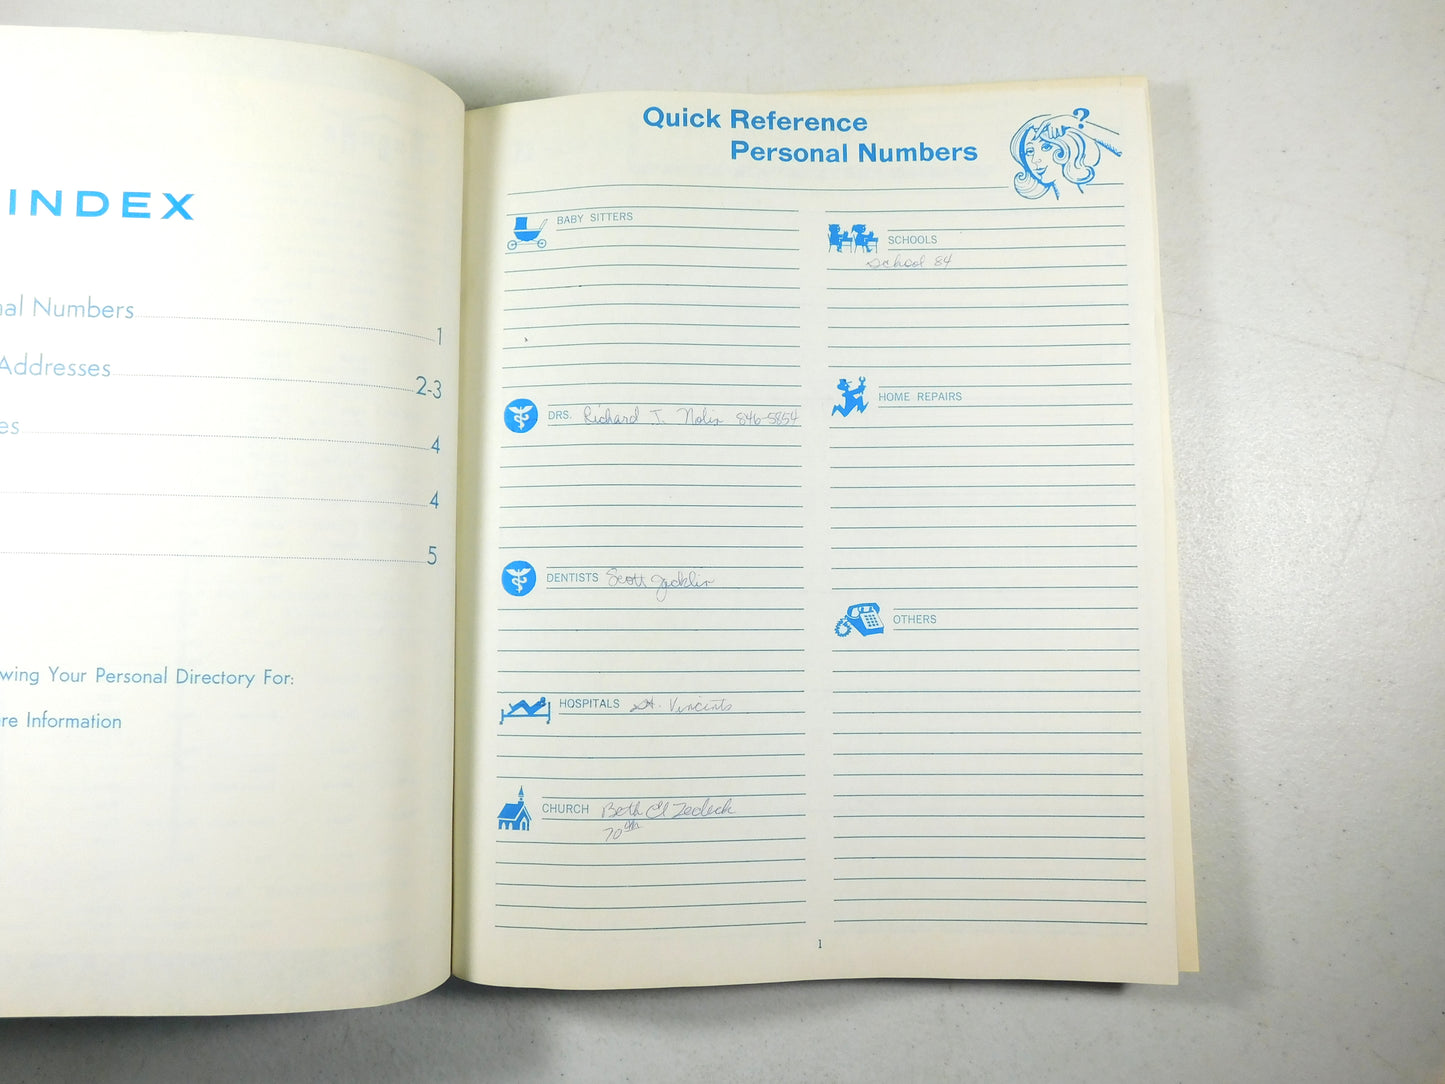 INDEX
nal Numbers 1
Addresses 2-3
es 4
4
5
wing Your Personal Directory For:
re Information
Quick Reference
Personal Numbers
?
BABY SITTERS
DRS. Richard J. Nolin 846-5854
DENTISTS Scott Jacklin
HOSPITALS St. Vincints
CHURCH Beth El Zedeck
70th
SCHOOLS
School 84
HOME REPAIRS
OTHERS
1